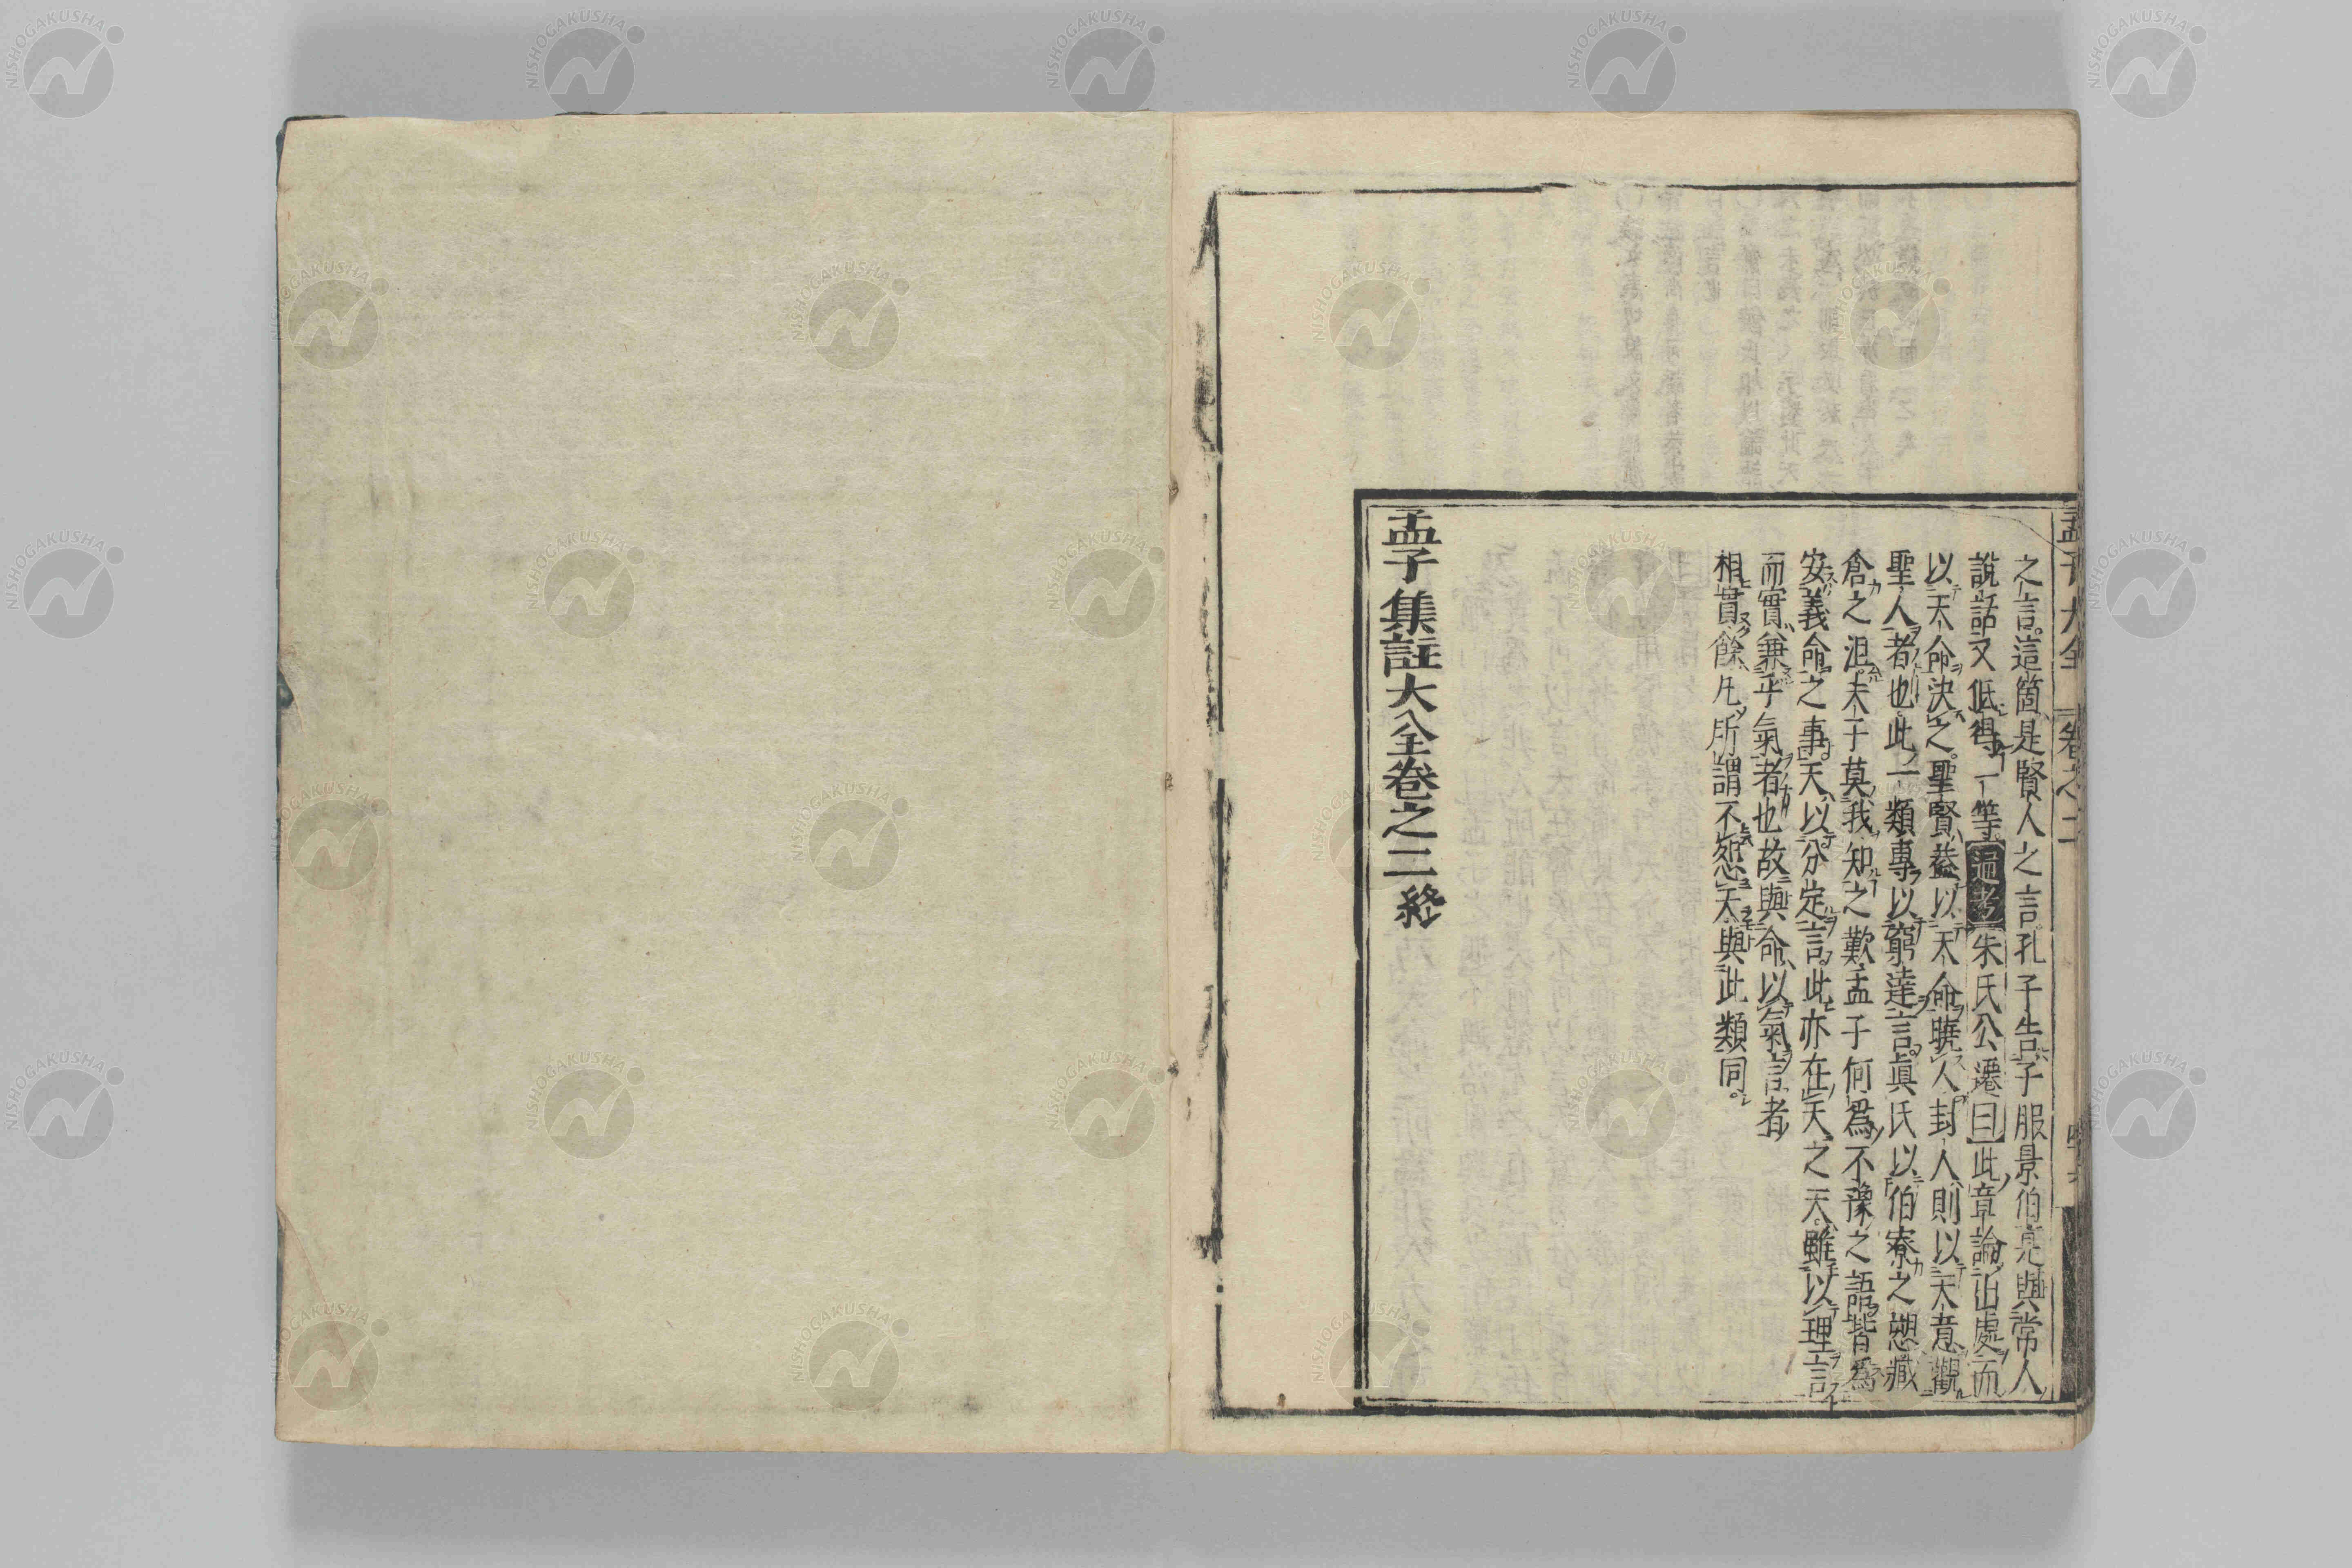 之言。這箇是賢人之言。孔子告子服景伯是與常人
說話又低得一等。通考朱氏公遷曰此章論出處而
以天命決之。聖賢葢以天命曉人封人則以天意觀
聖人者也此一類專以窮達言。眞氏以伯寮之愬臧
倉之沮。夫子莫我知之歎孟子何爲不豫之語皆爲
安義命之事。天以分定言。此亦在天之天雖以理言
而實兼乎氣者也故與命以氣言者
相貫餘凡所謂不怨天與此類同。
孟子集註大全卷之二終